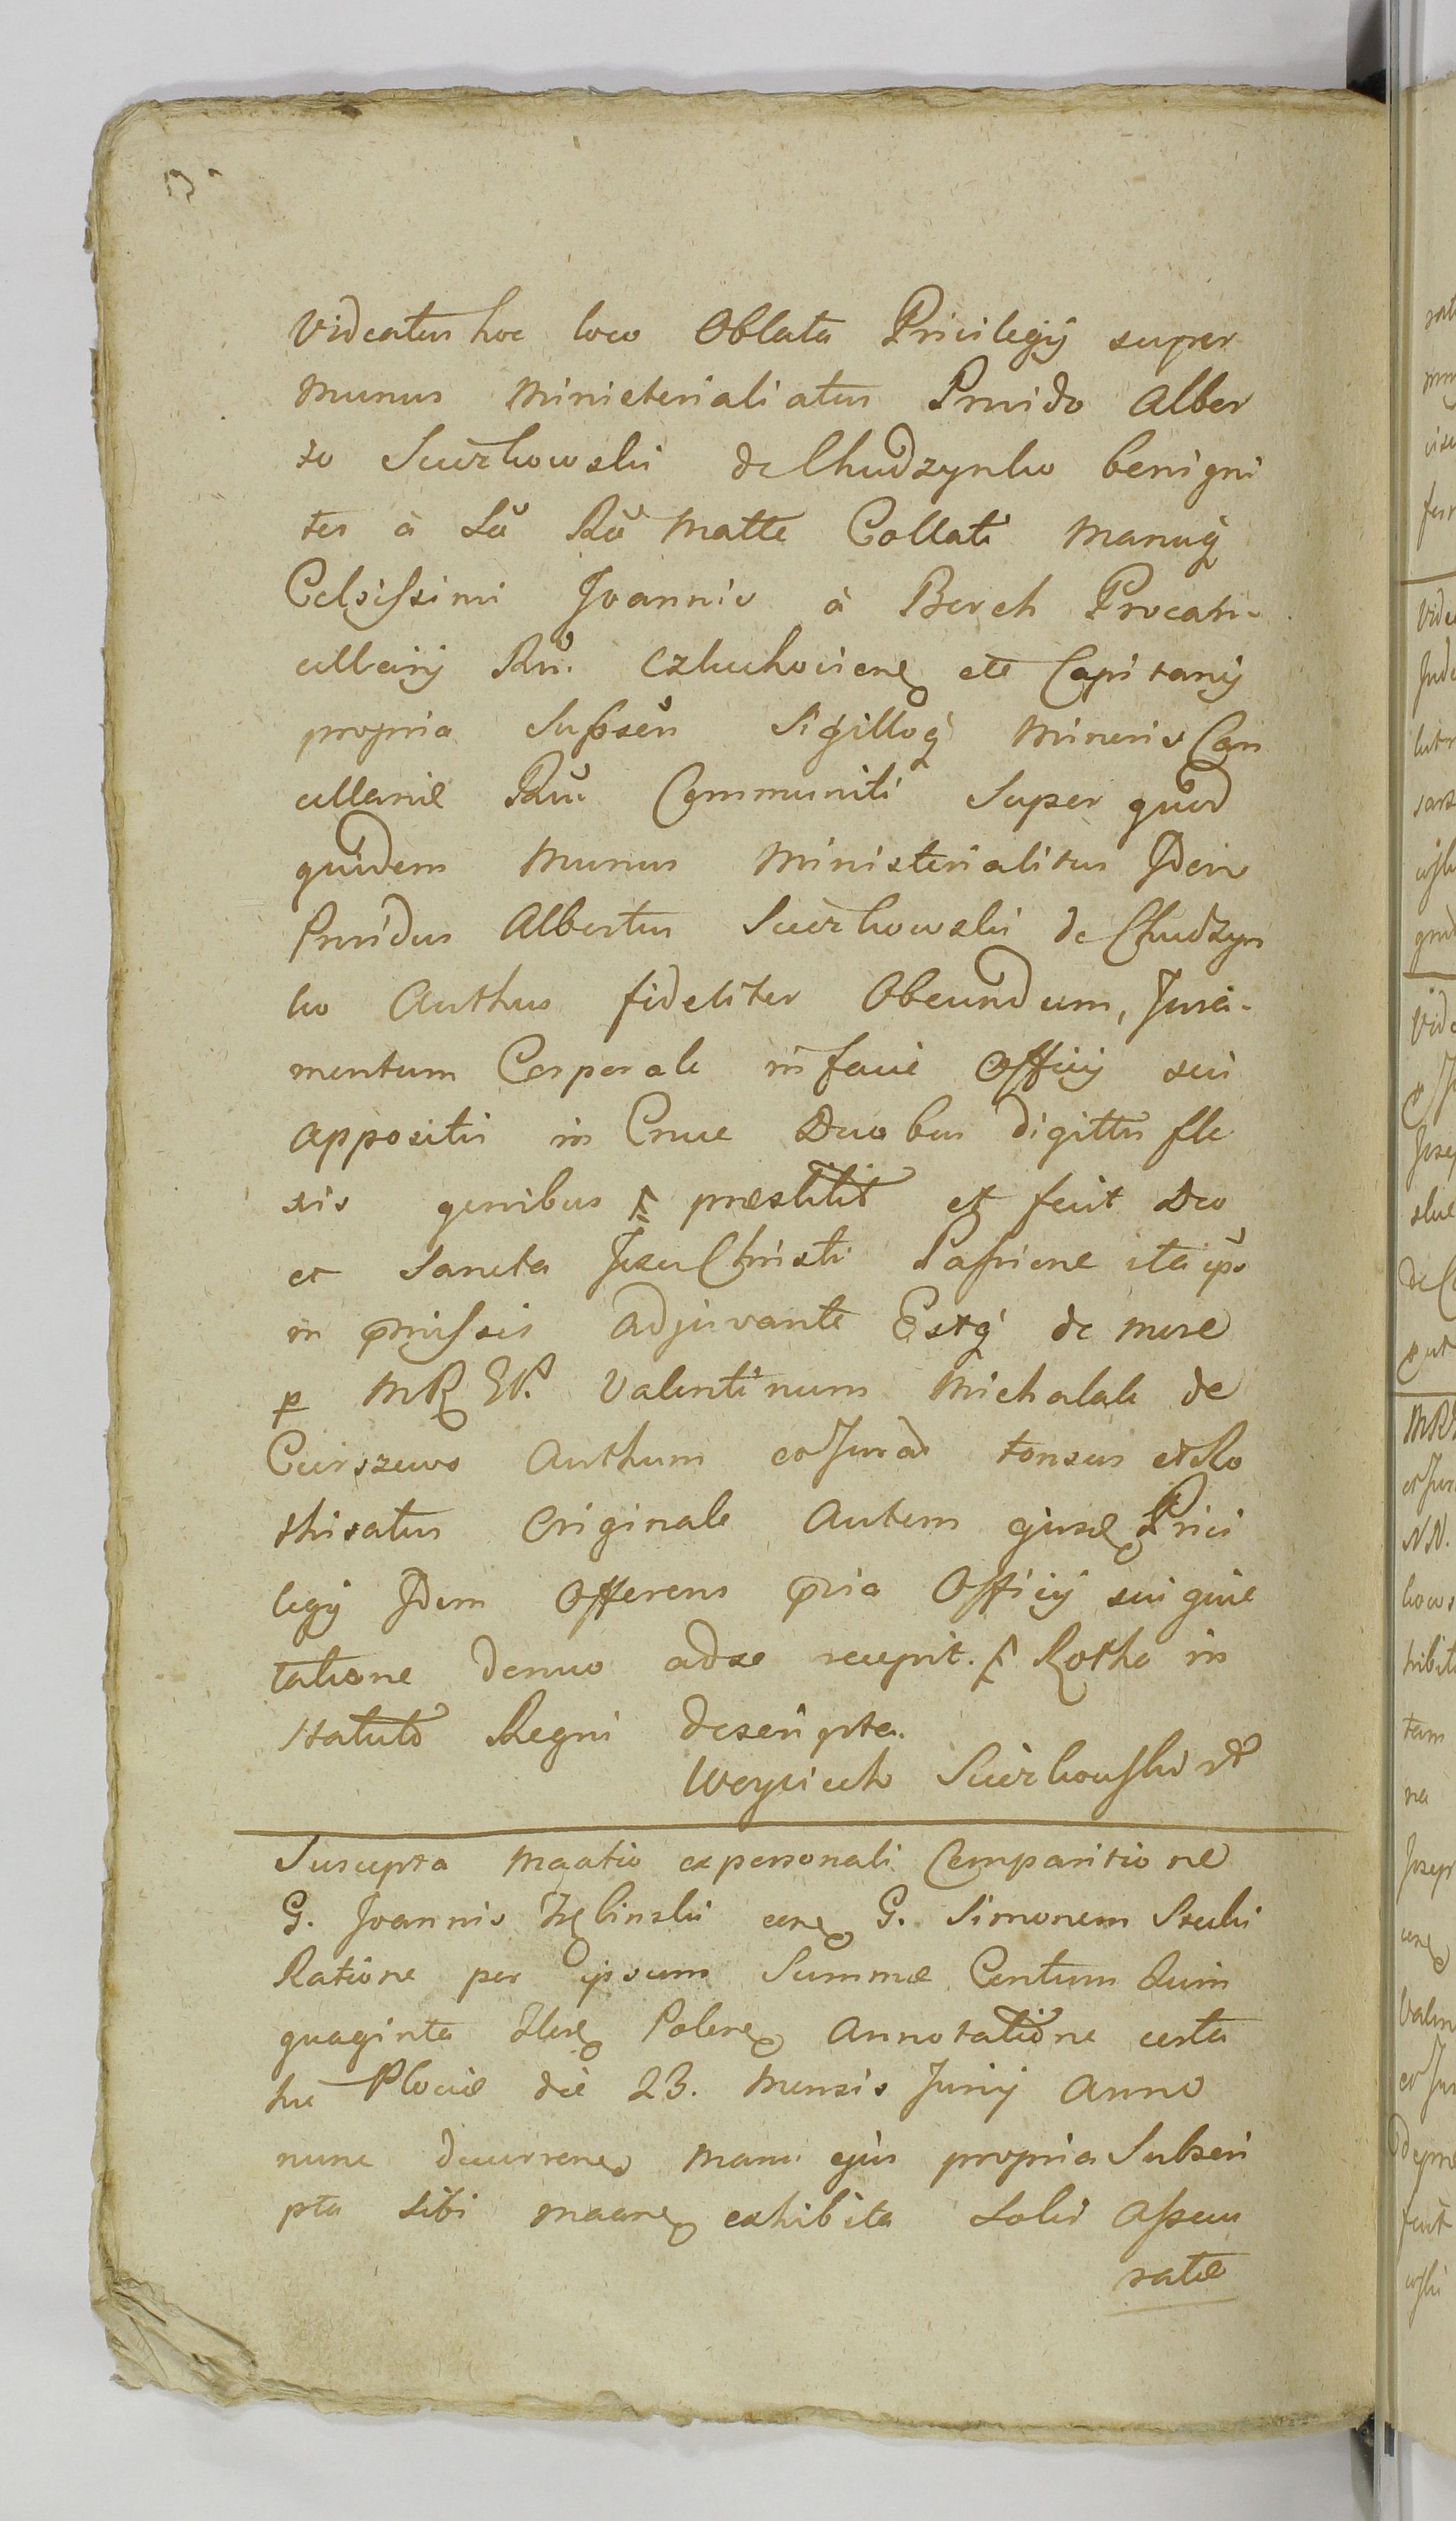 Videatur hoc loco Oblata Privilegij super
Munus Ministerialiatus Provido Alber
to Swierkowski de Chudzynko benigni
ter à Sã Rã Matte Collati Manuq
Celsissimi Joannis à Borch Procan-
cellarij Rñi. Czluchovien etc Capitanij
propria Subscri Sigilloq Minoris Can
cellariæ Rñi Communiti Super quod
quidem Munus Ministerialitus Idem
Providus Albertus Swierkowski de Chudzyn
ko Authus fideliter Obeundum, Jura-
mentum Corporale in facie Officij sui
appositis in Cruce Duobus digittis fle
xis genibus præstitit et fecit Deo
et Sancta Jesu Christi Passione ita ipso
in pmissis adjuvante Estq de more
p MRGP. Valentinum Michalak de
Ciurszewo Authum et Jurad tonsus et Ro
thisatus Originale Autem ejusd Privi
legij Idem Offerens pria Officij sui quie
tatione denuo ad se recepit. Rotha in
statuto Regni descripta.
Woyciech Swierkowski
Suscepta Maatio ex personali Comparitione
G. Joannis Zębinski cone G. Simonem Szulu
Ratione per ipsum Summæ Centum Quin
quaginta Flore Polone annotatione certa
hic Plociæ die 23. Mensis Junij Anno
nunc decurrene manu ejus propria Subscri
pta sibi maane exhibita Solis Assecu
ratæ